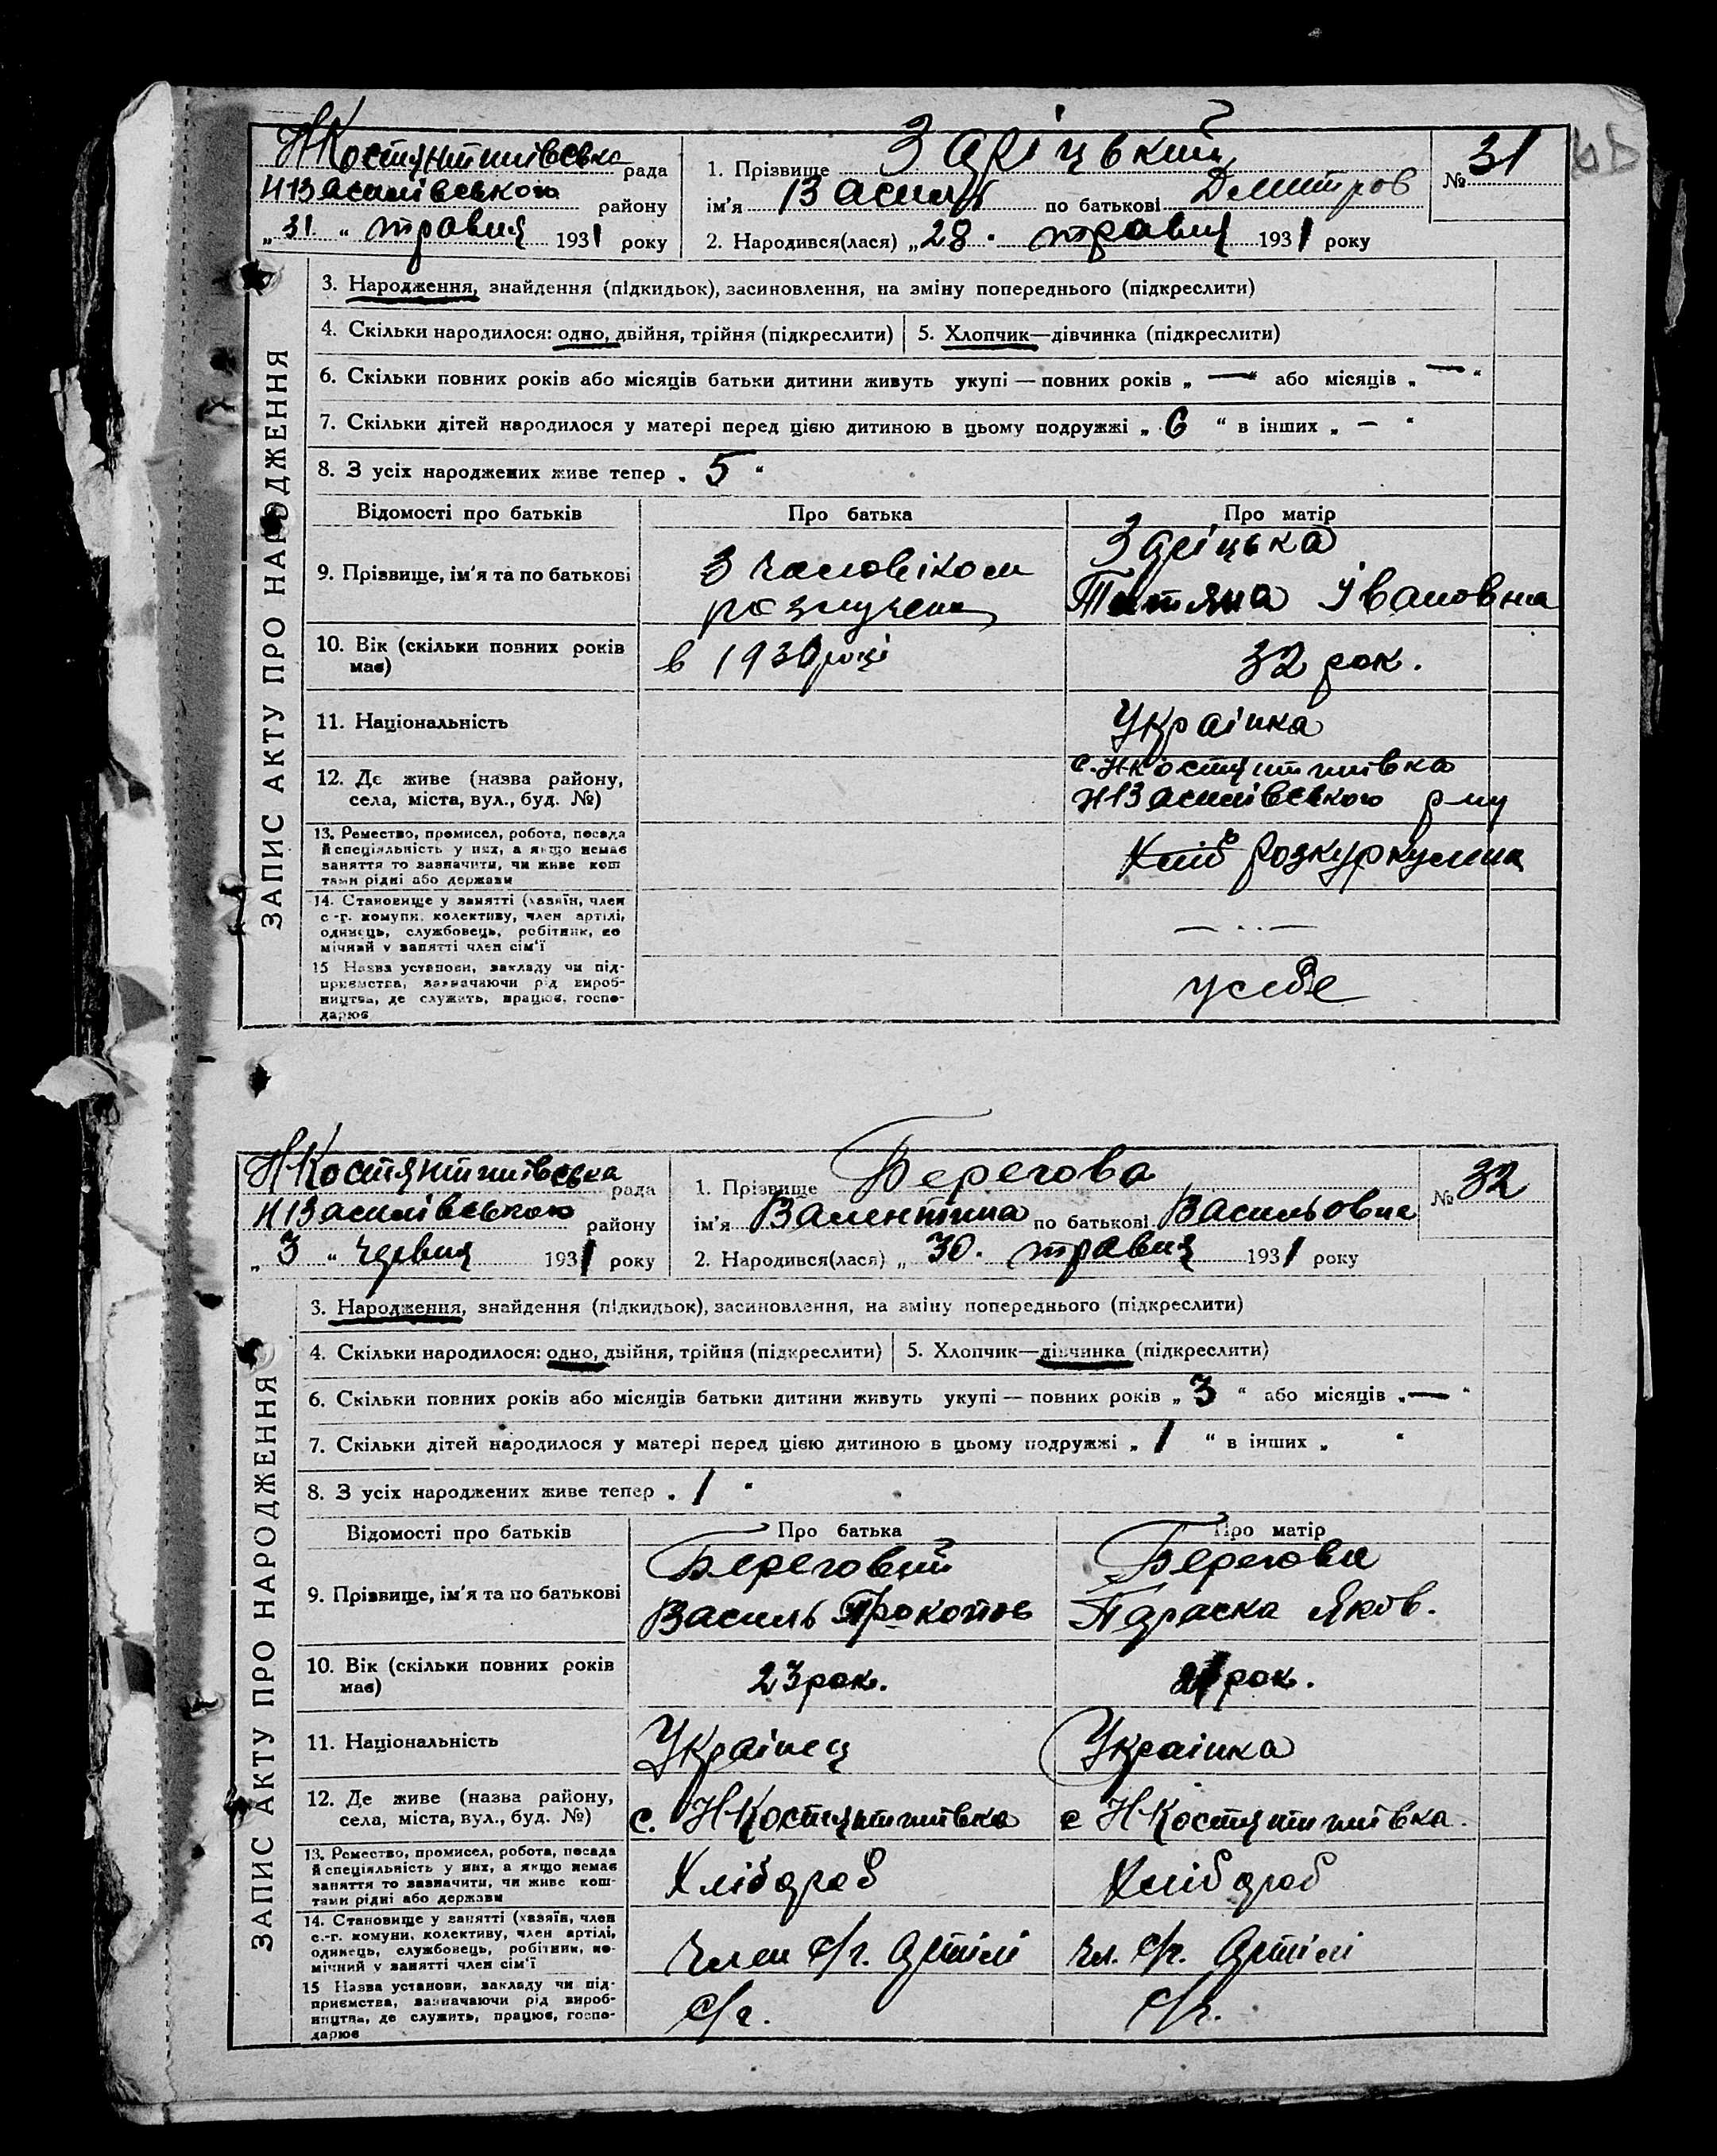 НКостянтинівська рада
НВасилівського району
„ 31 “ травня 1931 року
1. Прізвище Заріцький № 31
ім'я Василь по батькові Дмитров
2. Народився(лася) „ 28 “ травня 1931 року
ЗАПИС АКТУ ПРО НАРОДЖЕННЯ
3. Народження, знайдення (підкидьок), засиновлення, на зміну попереднього (підкреслити)
4. Скільки народилося: одно, двійня, трійня (підкреслити) 5. Хлопчик—дівчинка (підкреслити)
6. Скільки повних років або місяців батьки дитини живуть укупі — повних років „ — “ або місяців „ — “
7. Скільки дітей народилося у матері перед цією дитиною в цьому подружжі „ 6 “ в інших „ — “
8. З усіх народжених живе тепер „ 5 “
Відомості про батьків Про батька Про матір
9. Прізвище, ім'я та по батькові З чоловіком розлучена Заріцька Титяна Івановна
10. Вік (скільки повних років має) в 1930 році 32 рок.
11. Національність Українка
12. Де живе (назва району, села, міста, вул., буд. №) с. НКостянтинівка НВасилівського р-ну
13. Ремество, промисел, робота, посада й спеціяльність у них, а якщо немає заняття то зазначити, чи живе коштами рідні або держави Хліб Розкуркулина
14. Становище у занятті (хазяїн, член с.-г. комуни, колективу, член артілі, одинець, службовець, робітник, помічний у занятті член сім'ї — .. —
15 Назва установи, закладу чи підприємства, зазначаючи рід виробництва, де служить, працює, господарює у себе
НКостянтинівська рада
НВасилівського району
„ 3 “ червня 1931 року
1. Прізвище Берегова № 32
ім'я Валентина по батькові Васильовна
2. Народився(лася) „ 30 “ травня 1931 року
ЗАПИС АКТУ ПРО НАРОДЖЕННЯ
3. Народження, знайдення (підкидьок), засиновлення, на зміну попереднього (підкреслити)
4. Скільки народилося: одно, двійня, трійня (підкреслити) 5. Хлопчик—дівчинка (підкреслити)
6. Скільки повних років або місяців батьки дитини живуть укупі — повних років „ 3 “ або місяців „ — “
7. Скільки дітей народилося у матері перед цією дитиною в цьому подружжі „ 1 “ в інших „ “
8. З усіх народжених живе тепер „ 1 “
Відомості про батьків Про батька Про матір
9. Прізвище, ім'я та по батькові Береговий Василь Прокопов Берегова Параска Яков.
10. Вік (скільки повних років має) 23 рок. 21 рок.
11. Національність Українец Українка
12. Де живе (назва району, села, міста, вул., буд. №) с. НКостянтинівка с НКостянтинівка.
13. Ремество, промисел, робота, посада й спеціяльність у них, а якщо немає заняття то зазначити, чи живе коштами рідні або держави Хлібароб Хлібароб
14. Становище у занятті (хазяїн, член с.-г. комуни, колективу, член артілі, одинець, службовець, робітник, помічний у занятті член сім'ї Член с/г. Артілі Чл. с/г. Артілі
15 Назва установи, закладу чи підприємства, зазначаючи рід виробництва, де служить, працює, господарює с/г. с/г.